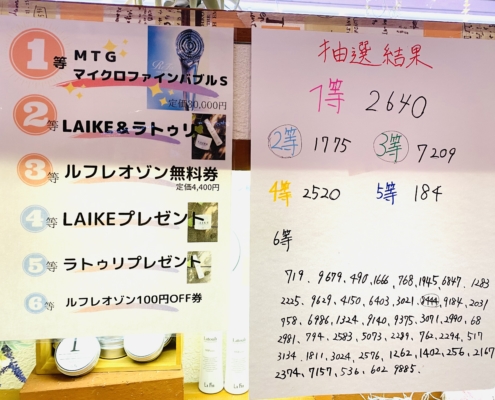 1等 MTG
マイクロファインバブルS
定価30,000円
2等 LAIKE＆ラトゥリ
3等 ルフレオゾン無料券
定価4,400円
4等 LAIKEプレゼント
5等 ラトゥリプレゼント
6等 ルフレオゾン100円OFF券
抽選結果
1等 2640
2等 1775 3等 7209
4等 2520 5等 184
6等
719. 9679. 490. 1666. 768. 1945. 6847. 1283
2225. 9629. 4150. 6403. 3021. 9184. 2031
958. 6986. 1324. 9140. 9375. 3071. 2990. 68
2981. 794. 2583. 5073. 2289. 762. 2294. 517
3134. 1811. 3024. 2576. 1262. 1402. 256. 2167
2374. 7157. 536. 602. 9885.